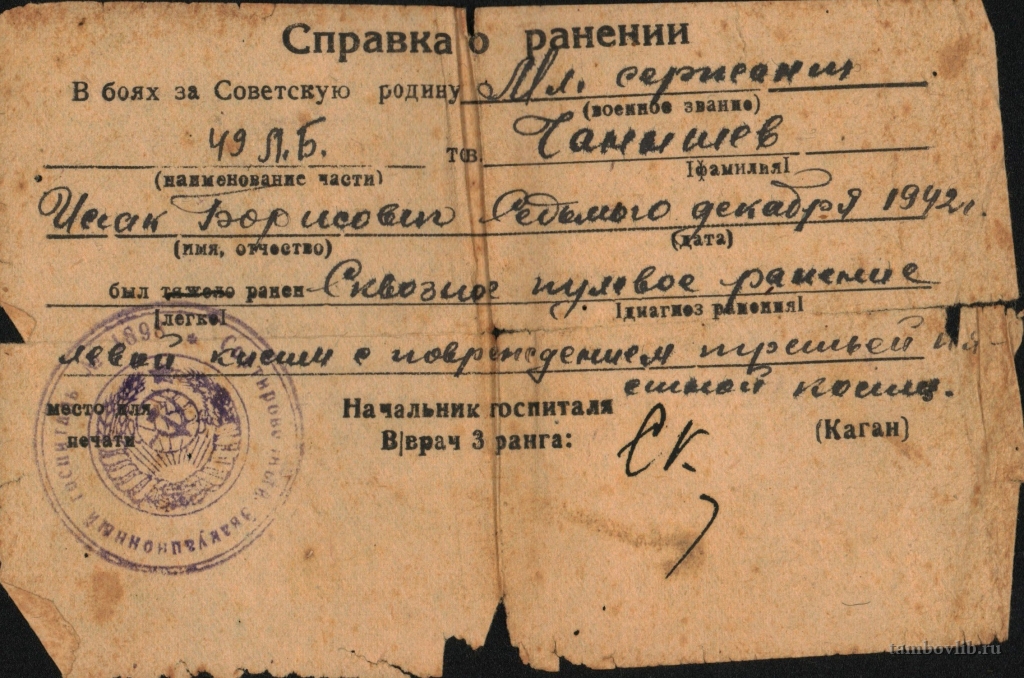 Справка о ранении
В боях за Советскую родину Мл. сержант
(военное звание)
49 Л.Б. тов. Чаннышев
(наименование части) |фамилия|
Исак Борисович Седьмого декабря 1942 г.
(имя, отчество) (дата)
был тяжело ранен Сквозное пулевое ранение
|легко| |диагноз ранения|
левой кисти с повреждением третьей пя-
стной кости.
место для Начальник госпиталя
печати В|врач 3 ранга: (Каган)
Эвакуационный госпиталь
tambovlib.ru